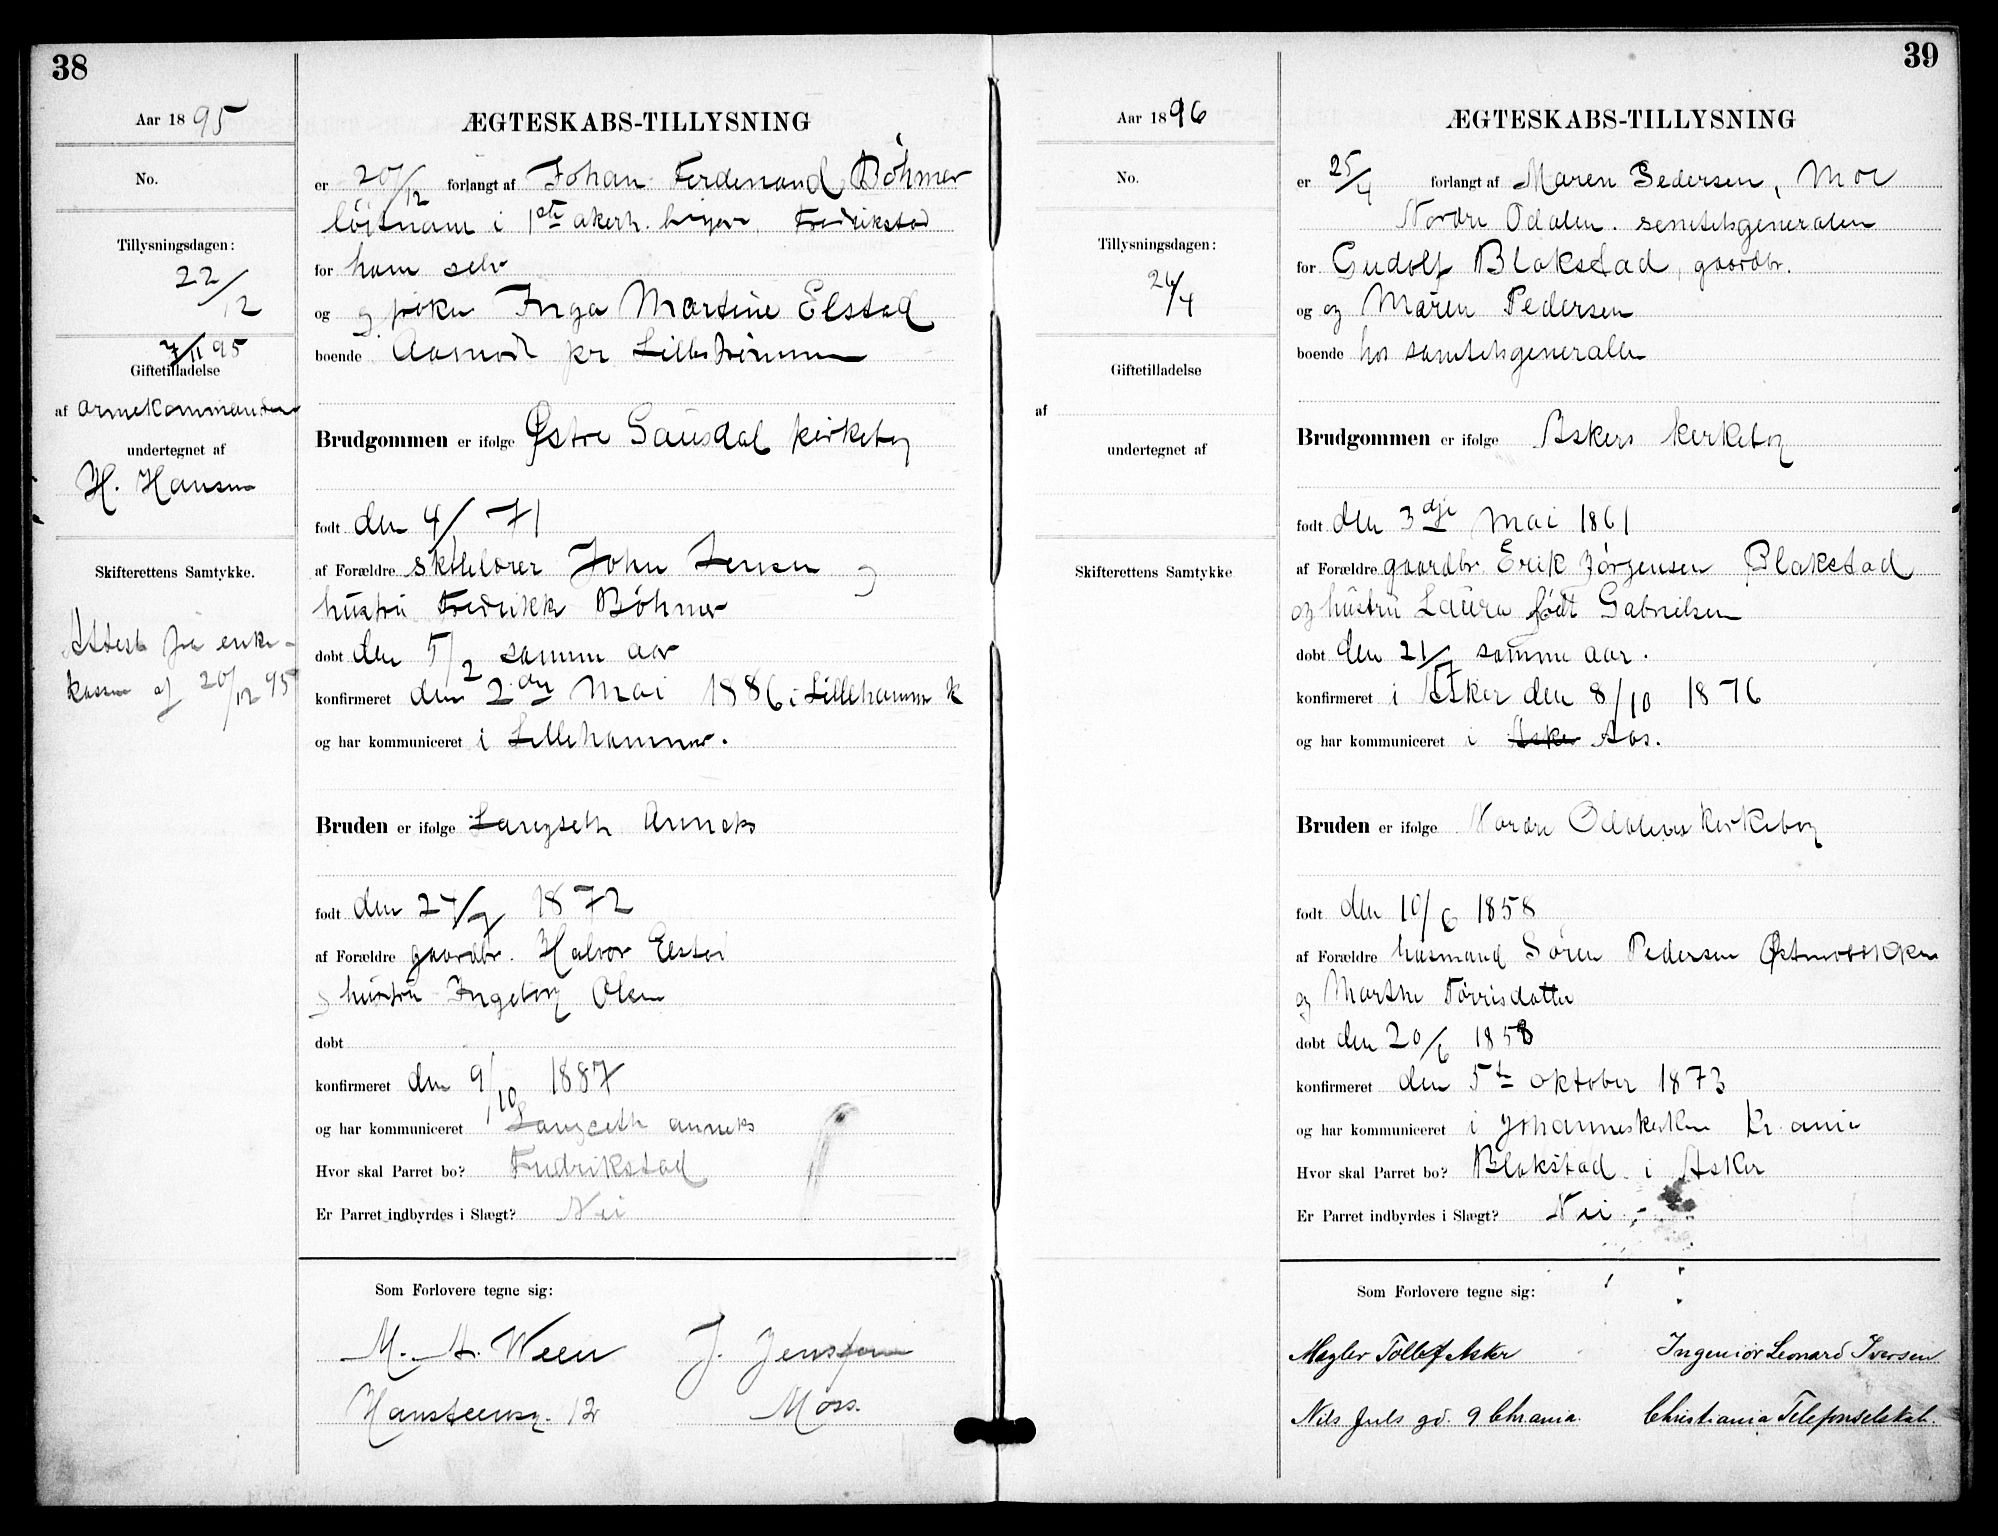 38
Aar 1895
No.
Tillysningsdagen:
22/12
7/11 95
Giftetilladelse
af armekommanden
undertegnet af
H. Hansen
Skifterettens Samtykke.
Attest fra enke-
kassen af 20/12 95
ÆGTESKABS-TILLYSNING
er 20/12 forlangt af Johan Ferdenand Böhmer
löitnant i 1ste akerh. Fredrikstad
for ham selv
og pike Inga Martine Elstad
boende Aamodt pr Lillestrømmen
Brudgommen er ifølge Østre Gausdal kirkebog
født den 4/ 71
af Forældre skolelærer John Jensen og
hustru Fredrikke Böhmer
døbt den 5/2 samme aar
konfirmeret den 2den Mai 1886 i Lillehammer k
og har kommuniceret i Lillehammer.
Bruden er ifølge Langseth Anneks
født den 24/7 1872
af Forældre gaardbr. Halvor Elstad
og hustru Ingeborg Olsen
døbt
konfirmeret den 9/10 1887
og har kommuniceret Langseth anneks
Hvor skal Parret bo? Fredrikstad
Er Parret indbyrdes i Slægt? Nei
Som Forlovere tegne sig:
M. A. Ween J. Jenssen
Hansteensg. 12 Moss.
39
Aar 1896
No.
Tillysningsdagen:
26/4
Giftetilladelse
af
undertegnet af
Skifterettens Samtykke
ÆGTESKABS-TILLYSNING
er 25/4 forlangt af Maren Pedersen, Moe
Nordre Odalen.
for Gudolf Blakstad, gaardbr.
og og Maren Pedersen
boende hos
Brudgommen er ifølge Askers kirkebog
født den 3dje Mai 1861
af Forældre gaardbr Erik Jørgensen Blakstad
og hustru Laura født Gabrielsen
døbt den 21/7 samme aar.
konfirmeret i Asker den 8/10 1876
og har kommuniceret i Asker Aas.
Bruden er ifølge Nordre Odalens kirkebog
født den 10/6 1858
af Forældre husmand Sören Pedersen
og Marthe Törrisdatter
døbt den 20/6 1858
konfirmeret den 5te oktober 1873
og har kommuniceret i Johanneskirken Kr.ania
Hvor skal Parret bo? Blakstad i Asker
Er Parret indbyrdes i Slægt? Nei.
Som Forlovere tegne sig:
Mægler Tollef Asker Ingeniör Leonard Iversen
Nils Juls gd. 9 Chrania. Christiania Telefonselskab.